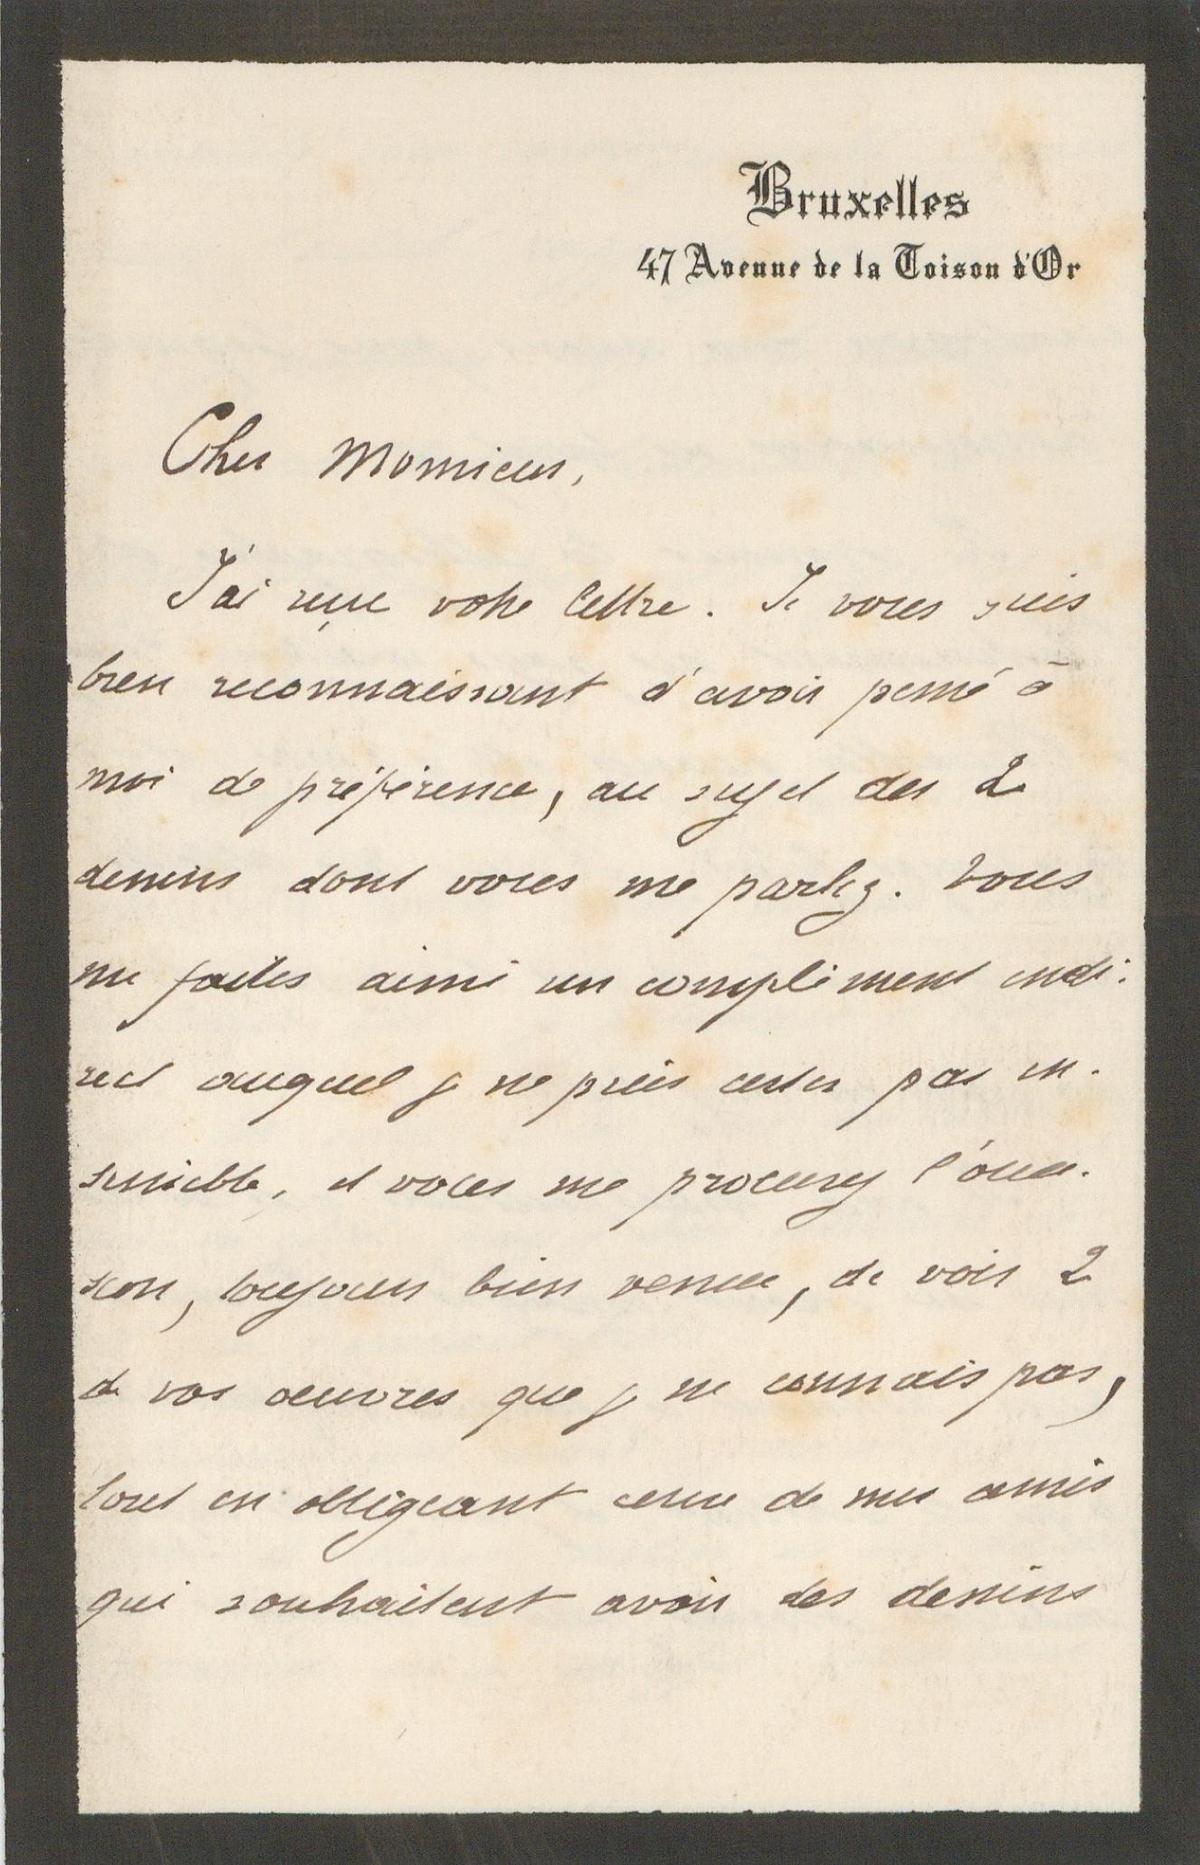 Bruxelles
47 Avenue de la Toison d'Or
Cher Monsieur,
J'ai reçu votre lettre. Je vous suis
bien reconnaissant d'avoir pensé à
moi de préférence, au sujet des 2
dessins dont vous me parlez. Vous
me faites ainsi un compliment indi-
rect auquel je ne puis rester pas in-
sensible, et vous me procurez l'occa-
sion, toujours bien venue, de voir 2
de vos œuvres que je ne connais pas,
tout en obligeant ceux de mes amis
qui souhaitent avoir des dessins